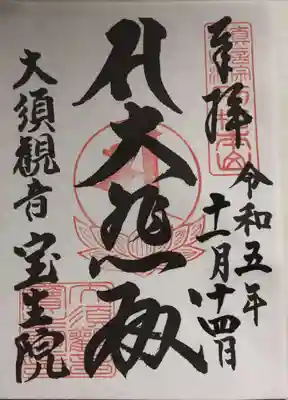 奉拝
令和五年
十一月十四日
大悲殿
大須観音 宝生院